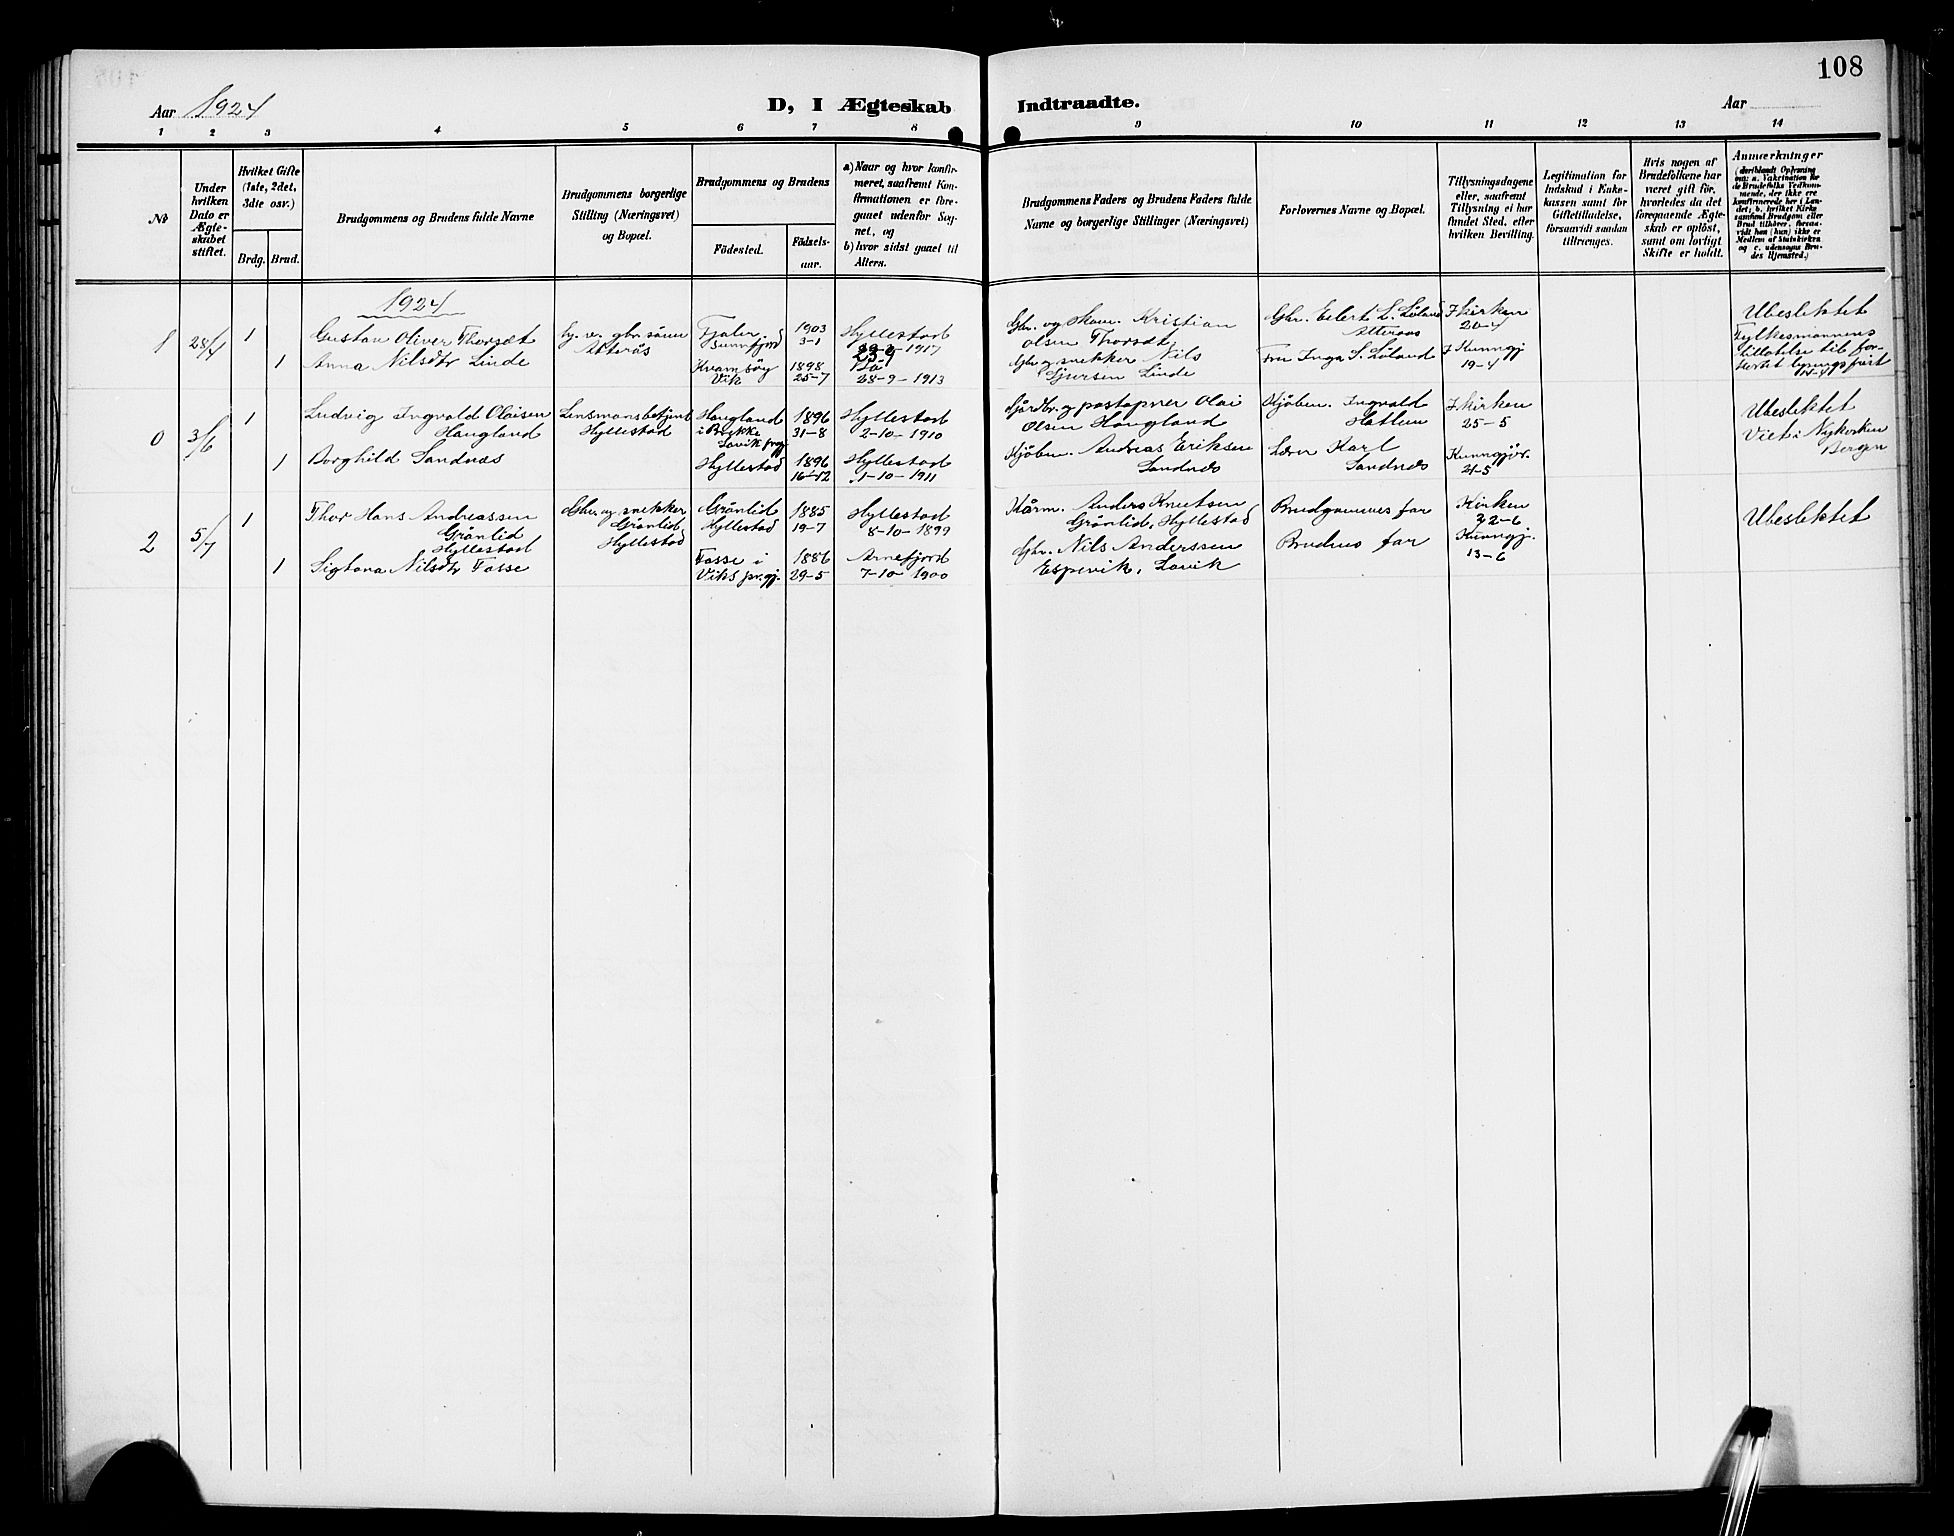 108
Aar 1924
D, I Ægteskab
Indtraadte.
Aar
1 2 3 4 5 6 7 8 9 10 11 12 13 14
No
Under hvilken Dato er Ægteskabet stiftet.
Hvilket Gifte (1ste, 2det, 3die osv.)
Brdg. Brud.
Brudgommens og Brudens fulde Navne
Brudgommens borgerlige Stilling (Næringsvei) og Bopæl.
Brudgommens og Brudens
Fødested.
Fødselsaar.
a) Naar og hvor konfirmeret, saafremt Konfirmationen er foregaaet udenfor Sognet, og
b) hvor sidst gaaet til Alters.
Brudgommens Faders og Brudens Faders fulde Navne og borgerlige Stillinger (Næringsvei)
Forlovernes Navne og Bopæl.
Tillysningsdagene eller, saafremt Tillysning ei har fundet Sted, efter hvilken Bevilling.
Legitimation for Indskud i Enkekassen samt for Giftetilladelse, forsaavidt saadan tiltrænges.
Hvis nogen af Brudefolkene har været gift før, hvorledes da det foregaaende Ægteskab er opløst, samt om lovligt Skifte er holdt.
Anmærkninger
(deriblandt Oplysning om: a. Vakcination for de Brudefolks Vedkommende, der ikke ere konfirmerede her i Landet, b. hvilket Kirkesamfund Brudgom eller Brud tilhører, forsaavidt han (hun) ikke er Medlem af Statskirken og c. udensogns Brudes Hjemsted.)
1924
1 28/4 1 Gustav Oliver Thorsæt
gbr.sønn
Atterås
Fjaler
Sunnfjord
1903
3-1
Hyllestad
1917
1 Anna Nilsdtr Linde
Kvamsøy
Vik
1898
25-7
28-9-1913
Gbr. og Skom. Kristian
Olsen Thorsæt
Gbr og snekker Nils
Sjursen Linde
Gbr. Eilert L. Løland
Atteraas
Fru Inga S. Løland
I Kirken
20-4
Kunngj
19-4
Ubeslektet
Fylkesmannens
tillatelse til for-
kortet lysningsfrist
0 3/6 1 Ludvig Ingvald Olaisen
Haugland
Lensmansbetjent
Hyllestad
Haugland
i Brekke
Lavik prgj
1896
31-8
Hyllestad
2-10-1910
1 Borghild Sandnæs
Hyllestad
1896
16-12
Hyllestad
1-10-1911
Gårdbr. og postaapner Olai
Olsen Haugland
Kjøbm. Andreas Eriksen
Sandnæs
Kjøbm. Ingvald
Hatlem
Lærer Karl
Sandnæs
I Kirken
25-5
Kunngjør.
21-5
Ubeslektet
Viet i Nykirken
Bergen
2 5/7 1 Thor Hans Andreassen
Grønlid
Hyllestad
Gbr. og snekker
Grønlid
Hyllestad
Grønlid
Hyllestad
1885
19-7
Hyllestad
8-10-1899
1 Sigtona Nilsdtr Fosse
Fosse i
Viks prgj.
1886
29-5
Arnefjord
7-10-1900
Kårm. Anders Knutsen
Grønlid, Hyllestad
Gbr. Nils Anderssen
Espevik, Lavik
Brudgommes far
Brudens far
Kirken
22-6
Kunngj.
13-6
Ubeslektet